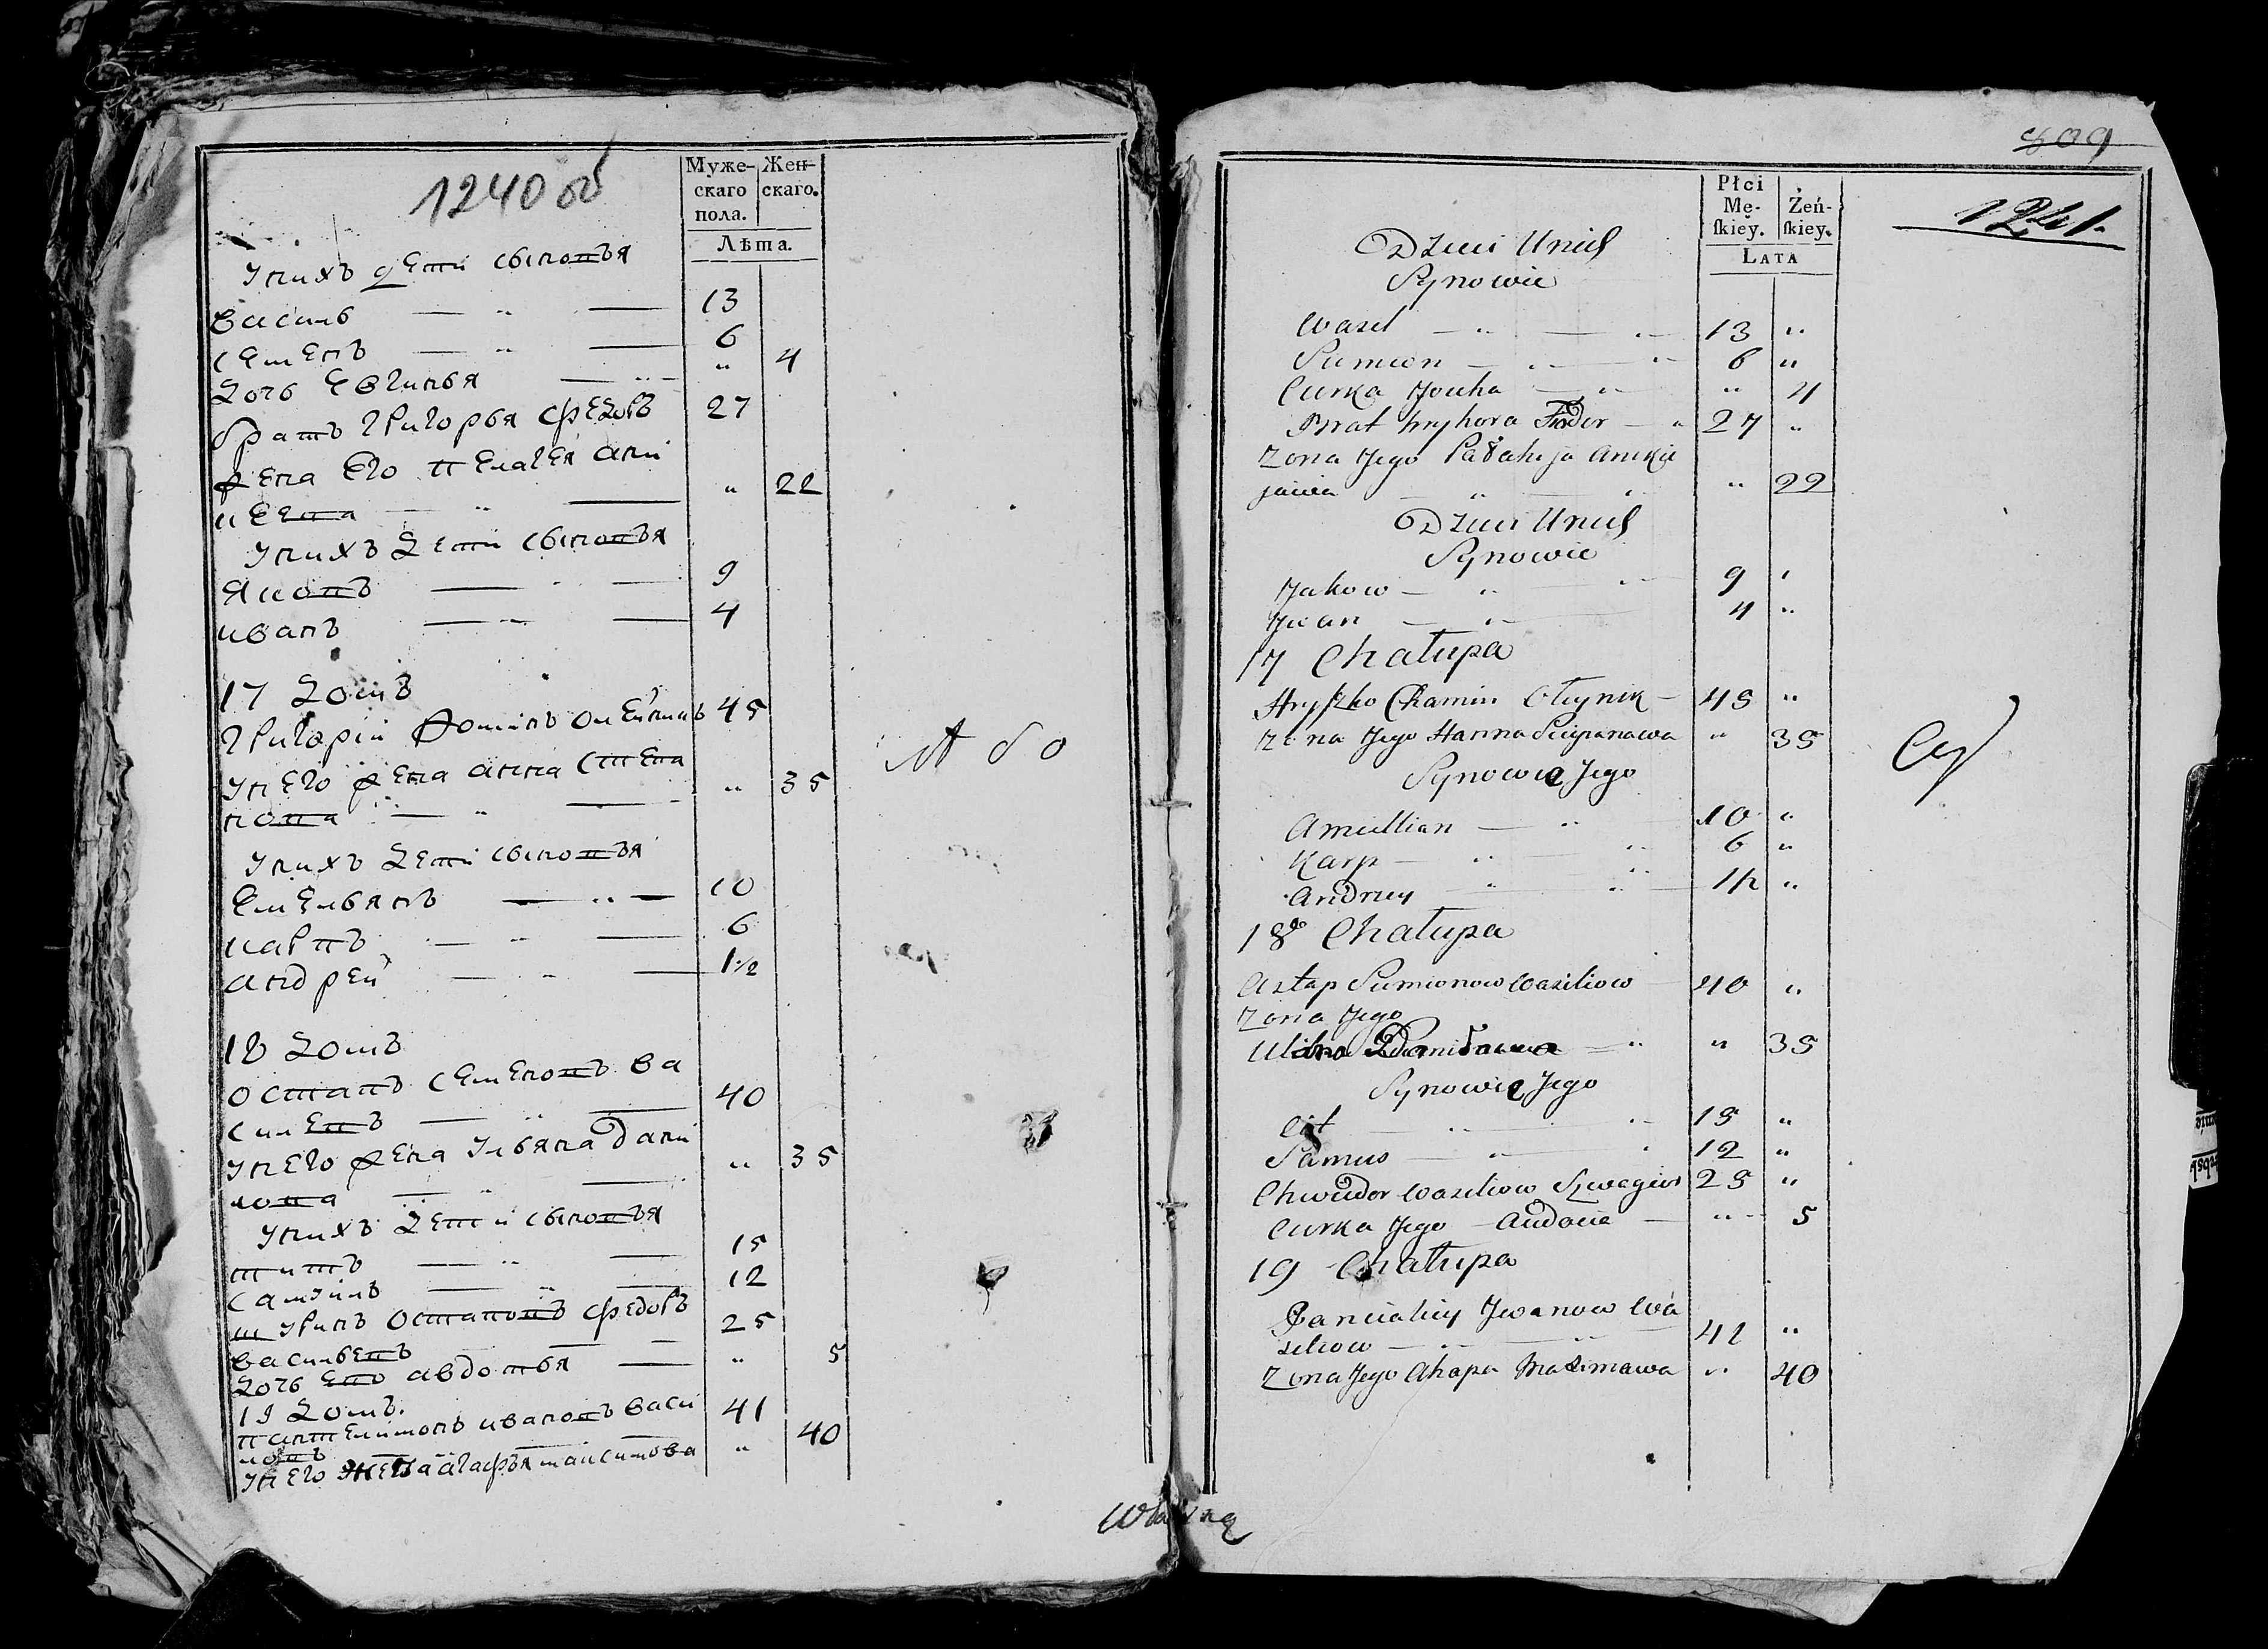 1240 об
Муже-
скаго
пола.
Жен-
скаго.
Лѣта.
Унихъ дети сыновья
василь — „ — 13
семенъ — „ — 6
дочь евгинья — „ — „ 4
братъ григорья федоръ 27
жена его пелагея ани
кеева — „ — „ 22
Унихъ дети сыновья
яковъ — „ — 9
иванъ — „ — 4
17 домъ
григорiй фоминъ олейникъ 45
Унего жена анна степа
нова — „ — „ 35
Унихъ дети сыновья
емельянъ — „ — 10
карпъ — „ — 6
андрей — „ — 1½
18 домъ
остапъ семеновъ ва
силевъ — „ — 40
Унего жена Ульяна дани
лова — „ — „ 35
Унихъ дети сыновья
титъ — „ — 15
самуилъ — „ — 12
шуринъ остаповъ федоръ
васильевъ — — 25
дочь ево авдотья — „ 5
19 домъ.
пантелимонъ ивановъ васи
ловъ 41
Унего жена агафья максимова „ 40
809
1241.
Płci
Mę-
skiey.
Żeń-
skiey.
LATA
Dzieci Unich
Synowie
Wasil — „ — „ 13 „
Siemion — „ — „ 6 „
Curka — „ — „ 4
Brat hryhora Fiodor — „ 27 „
Zona Jego Pałahija Anikie
jawa — „ — „ „ 22
Dzieci Unich
Synowie
Jakow — „ — „ 9 „
Jwan — „ — 4 „
17 Chałupa
Hryszko Chamin Oleynik — 45 „
Zona Jego Hanna Sciepanawa „ 35
Synowie Jego
Amiellian — „ — 10 „
Karp — „ — „ 6 „
Andrzey — „ — „ 1½ „
18 Chałupa
Astap Siemionow Wasiliow — 40 „
Zona Jego
Ulana Daniławna — „ „ 35
Synowie Jego
Cit — „ — „ 15 „
Samus — „ — „ 12 „
Chwiedor Wasiliow Szwagier 25 „
Curka Jego — Audocia — „ 5
19 Chałupa
Pancialiey Jwanow Wa
siliow — „ — „ 41 „
Zona Jego Ahapa Maximawa „ 40